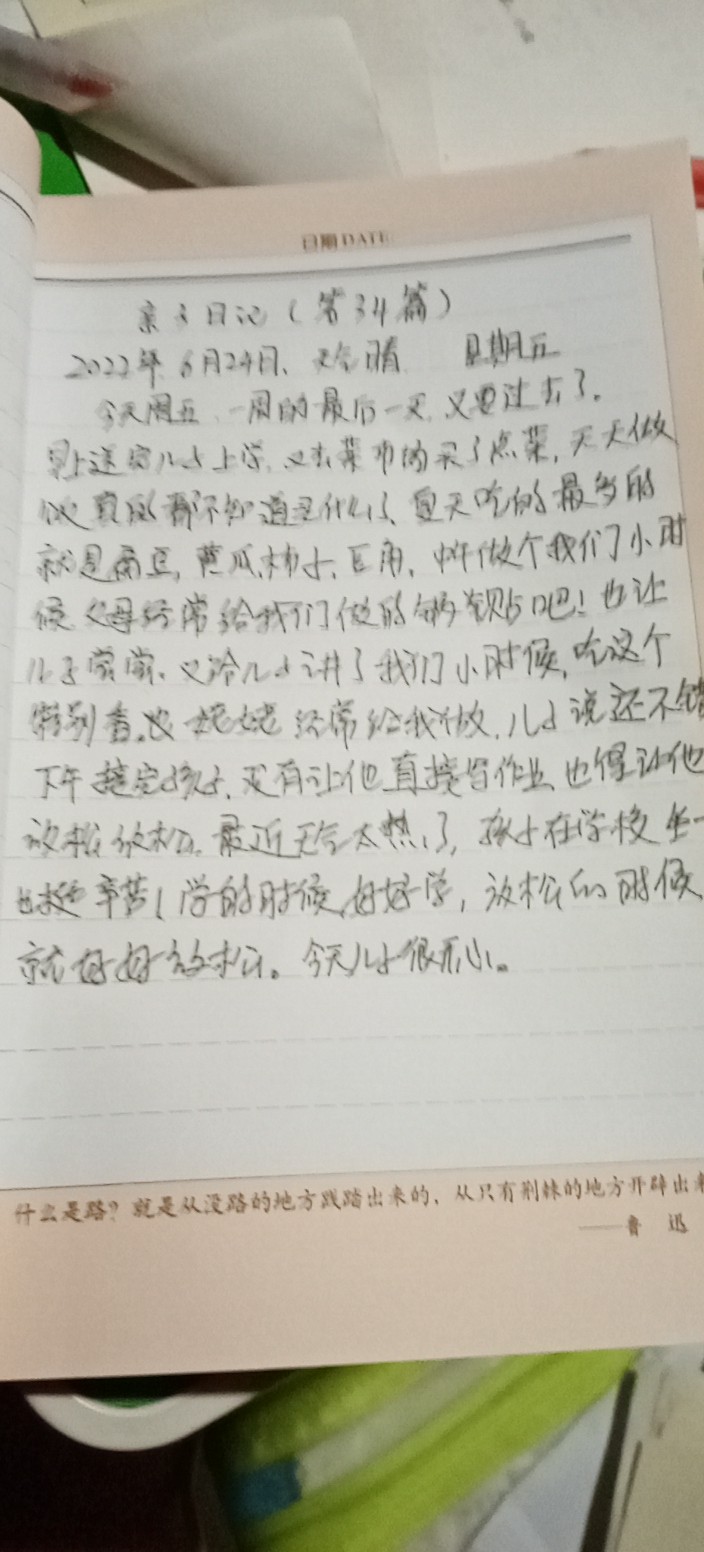 日期 DATE
亲子日记（第34篇）
2022年 6月24日、天气晴 星期五
今天周五、一周的最后一天,又要过去了。
早上送完儿子上学,又去菜市场买了点菜,天天做
饭真的都不知道是什么了、夏天吃的最多的
就是扁豆,黄瓜,柿子,豆角,中午做个我们小时
候父母经常给我们做的锅贴吧!也让
儿子尝尝、又给儿子讲了我们小时候,吃这个
特别香。也 姥姥经常给我做,儿子说还不错
下午接完孩子,没有让他直接写作业,也得让他
放松放松。最近天气太热了,孩子在学校坐一
也挺辛苦!学的时候,好好学,放松的时候
就好好放松。今天儿子很开心。
什么是路？就是从没路的地方践踏出来的，从只有荆棘的地方开辟出来
——鲁 迅